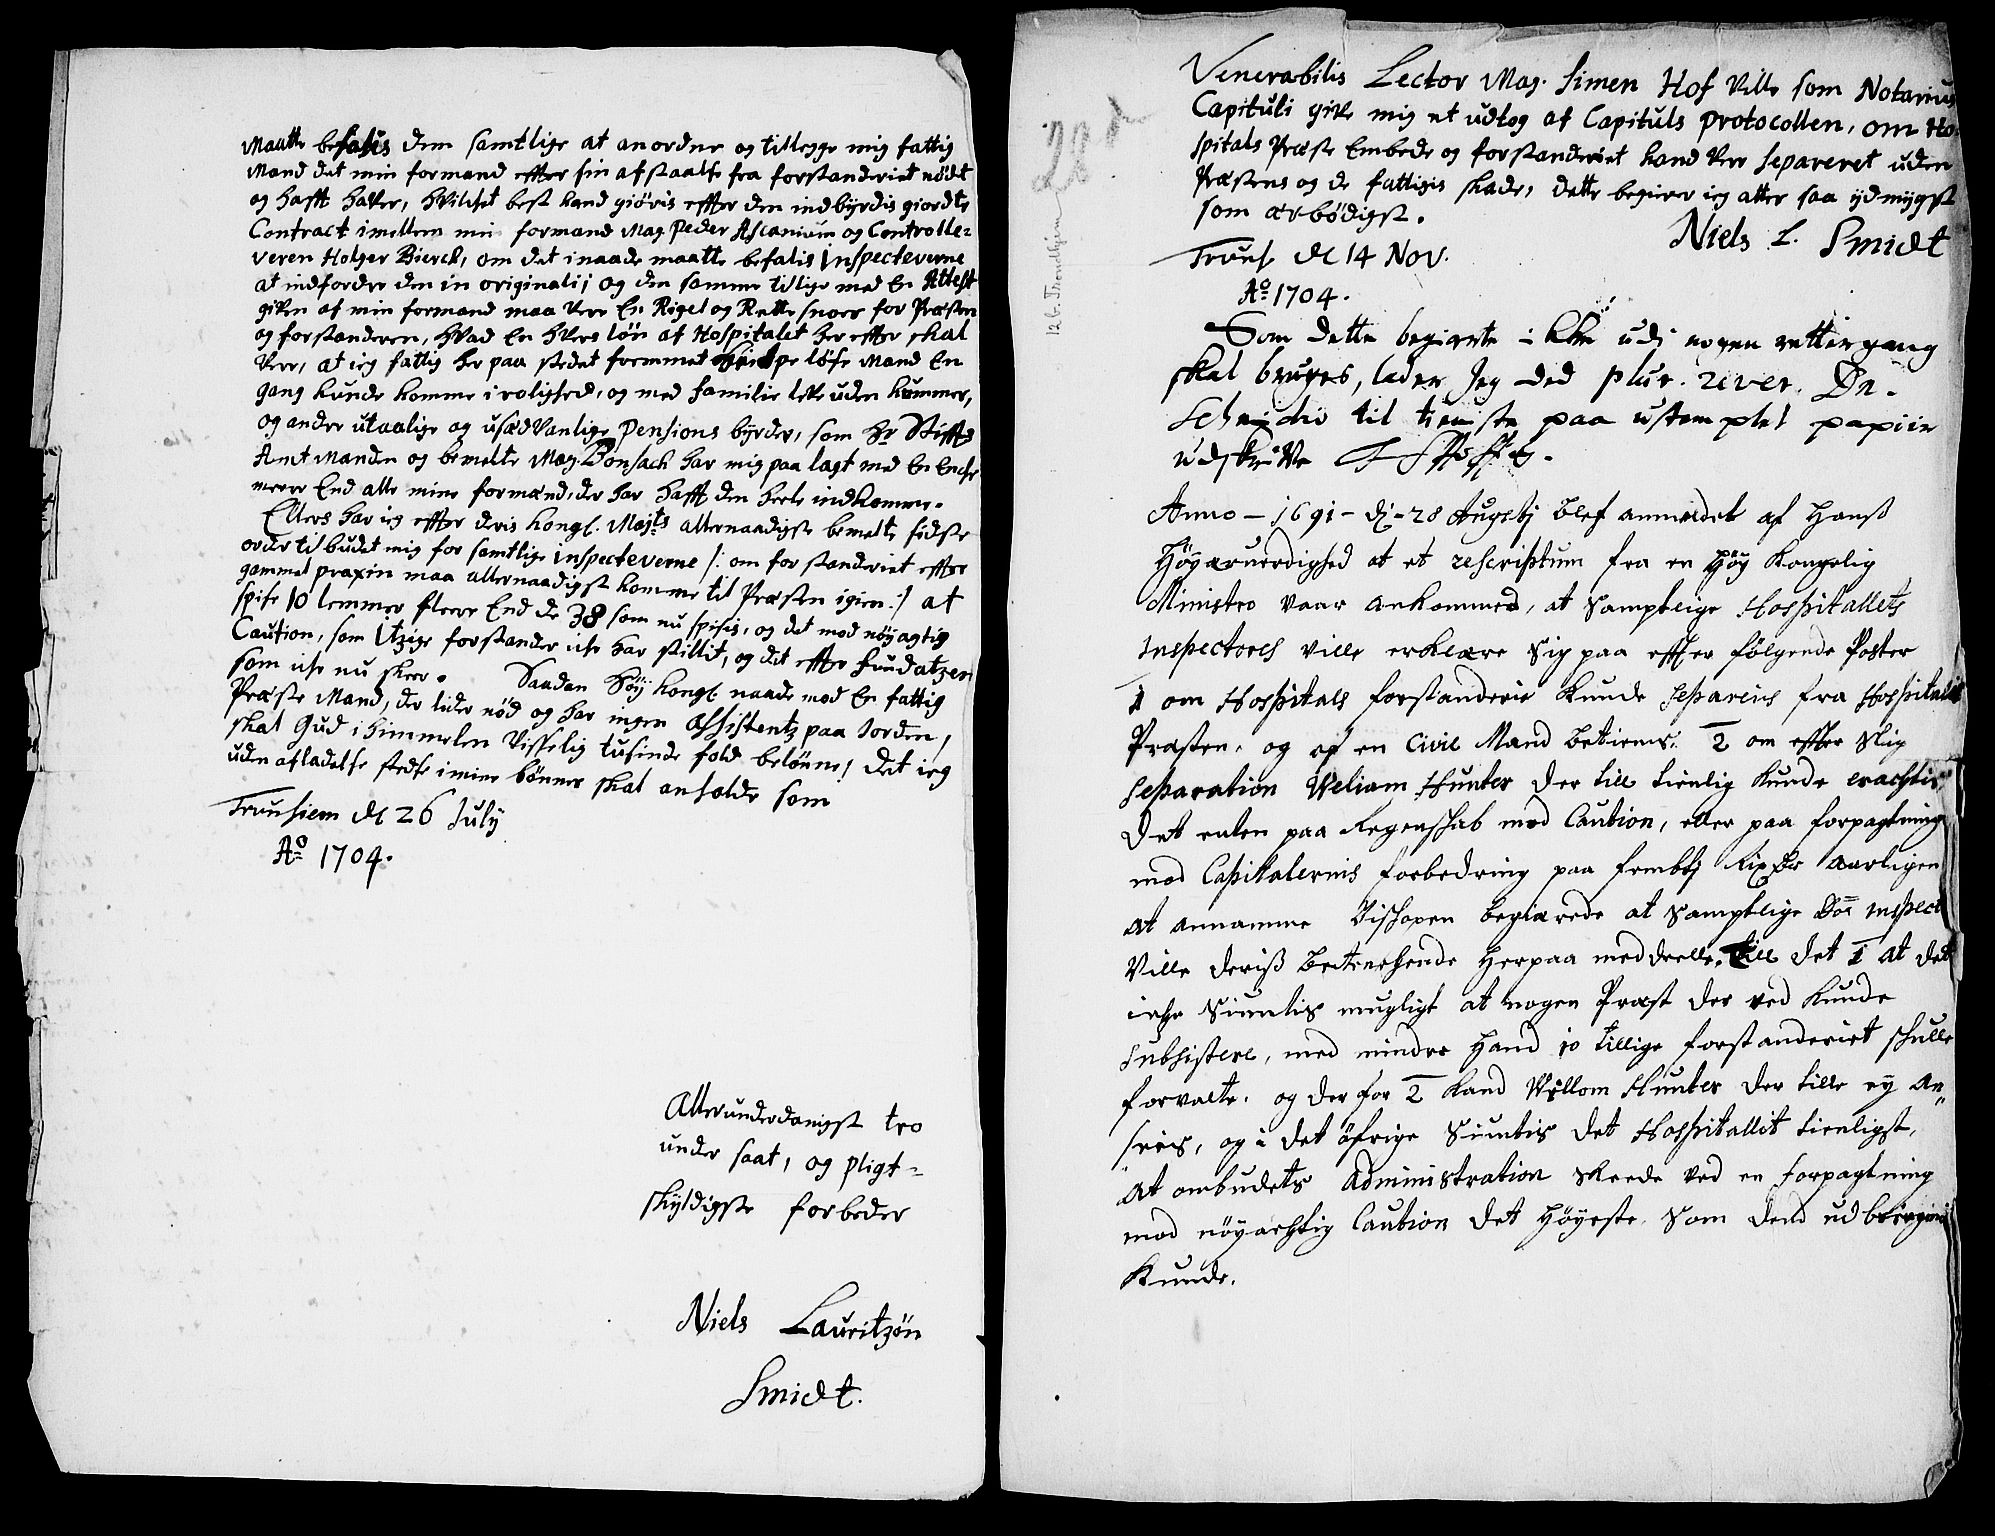 Maatte befalis dem samtlige at anordne og tillegge mig fattig
Mand det min formand effter sin afstaalse fra forstanderiet nödt
og hafft haver, hvilchet best kand giöris effter den indbÿrdis giordte
Contract imellem min formand Mag. Peder Ascanium og Controlle-
veren Holger Bierck, om det i naade maatte befalis Inspecteverne
at indfordre den in originali; og den samme tillige med En Attest
given af min formand maa være En Rigel og Rette snoer for Præsten
og forstanderen, hvad En hvers lön af Hospitalet her effter skal
være, at ieg fattig her paa stedet fremmet hielpe löse Mand En
gang kunde komme i rolighed, og med familie leve uden kummer,
og andre utaalige og usædvanlige Pensions byrder, som Hr Stiffts
Amt Manden og bemelte Mag. Bonsach har mig paa lagt med En Ende
meere End alle mine formænd, der har hafft den heele indkomme.
Ellers har ieg effter deris Kongl. Majts allernaadigste bemelte sidste
ordre tilbudet mig for samtlige inspecteverne /: om forstanderiet effter
gammel praxin maa allernaadigst komme til Præsten igien :/ at
spise 10 lemmer fleere End de 38 som nu spisis, og det mod nöyagtig
Caution, som itzige forstander iche har stillit, og det effter fundatzen
som iche nu skeer. Saadan Höÿ Kongl. naade mod En fattig
Præste Mand, der lider nöd og har ingen assistentz paa Jorden,
skal Gud i himmelen visselig tusinde fold belönne, det ieg
uden afladelse stedse i mine bönner skal anholde som
Trunhiem de 26 July
Ao 1704.
Allerunderdanigst tro
under saat, og pligt-
skÿldigste forbeder
Niels Lauritzön
Smidt.
Venerabilis Lector Mag. Simen Hof ville som Notarius
Capituli give mig et udtog af Capituls protocollen, om Ho-
spitals Præste Embede og forstanderiet kand være separeret uden
Præstens og de fattigis skade, dette begierer ieg atter saa ydmygst
som ærbödigst.
Niels L. Smidt
Trunh. de 14 Nov.
Ao 1704.
126. Trondhjem
Som dette begierte icke udj nogen rettergang
skal bruges, lader Jeg ded plur. rever. Dn.
Schmidio til tieniste paa ustemplet papiir
udskrive
Anno - 1691 - dj - 28 Augstj blef anmeldet af Hanß
Höyærverdighed at et rescriptum fra en Höy Kongelig
Ministro vaar ankommed, at samptlige Hospitallets
Inspectores ville erklære sig paa effter fölgende Poster
1 om Hospitals forstanderie kunde separeris fra Hospitals
Præsten, og af en Civil Mand betienis. 2 om effter slig
separation Weliam Hunter der till tienlig kunde erachtis
det enten paa Regenschab med Caution, eller paa forpagtning
med Capitalernis forbedring paa frembtj Rixdr aarligen
at annamme Bishopen begiærede at samptlige Drr inspect
Ville deriß betenchende herpaa meddeelle. Till det 1 at det
iche siuntis mugligt at nogen Præst der ved kunde
subsistere, med mindre hand jo tillige forstanderiet schulle
forvalte. og der for 2 kand Willom Hunter der tille ey an-
seeis, og i det öfrige siuntis det Hospitallit tienligst,
at ombudets Administration skeede ved en forpagtning
mod nöyachtig Caution det höyeste som dend udbringis
kunde.